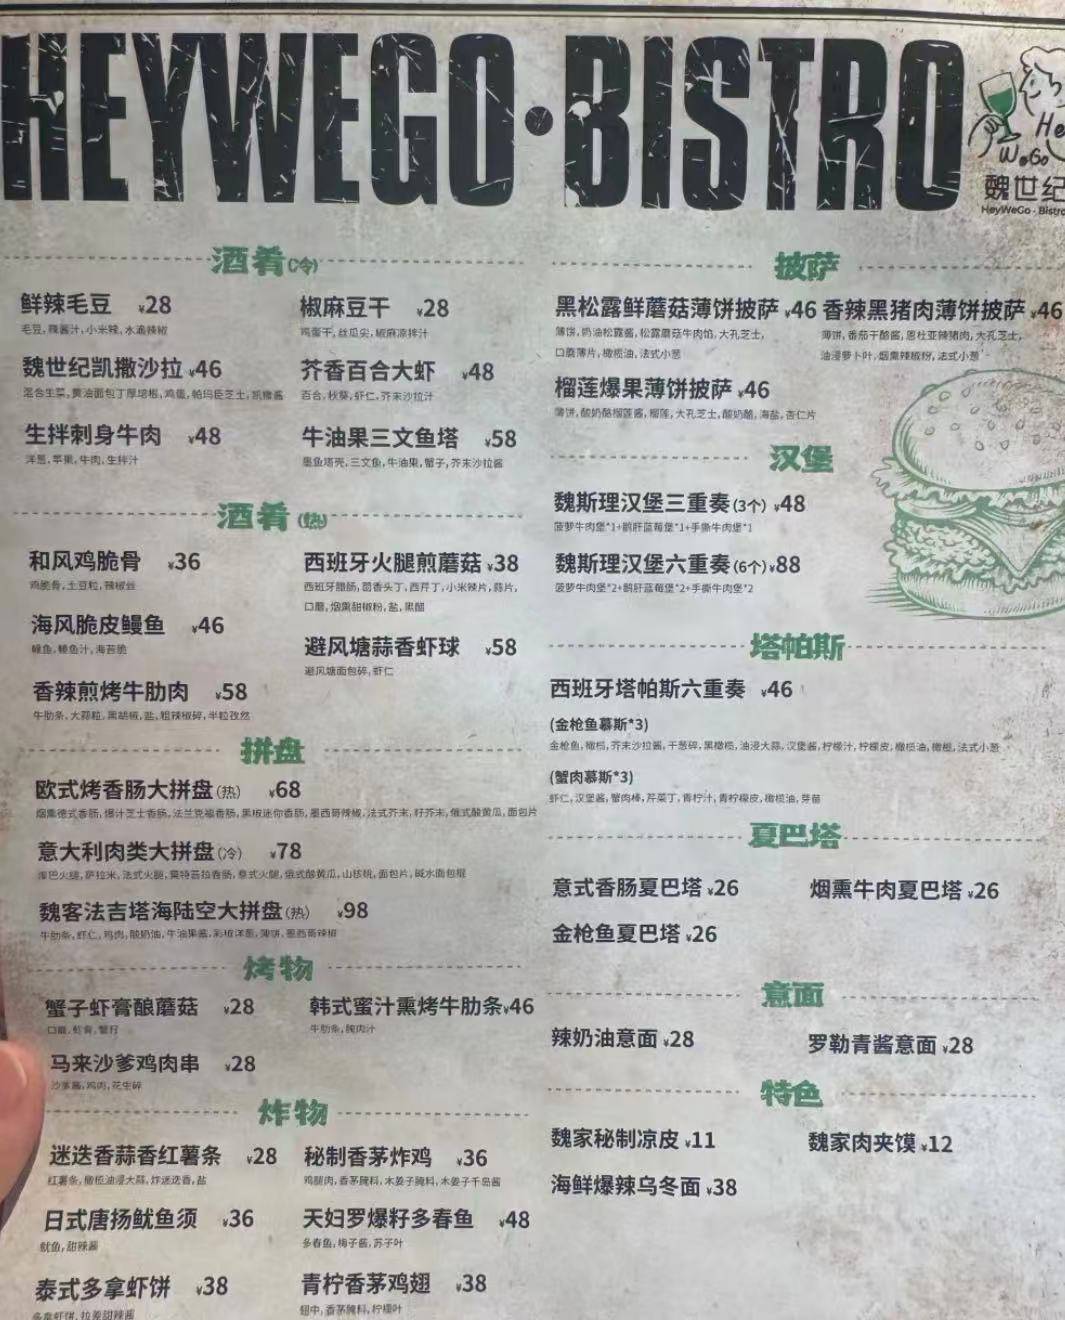 HEYWEGO·BISTRO
He
WeGo
魏世纪
HeyWeGo·Bistro
酒肴(冷)
鲜辣毛豆 ¥28
毛豆,辣酱汁,小米辣,水泡辣椒
椒麻豆干 ¥28
鸡蛋干,丝瓜尖,椒麻凉拌汁
魏世纪凯撒沙拉 ¥46
混合生菜,黄油面包丁厚培根,鸡蛋,帕玛臣芝士,凯撒酱
芥香百合大虾 ¥48
百合,秋葵,虾仁,芥末沙拉汁
生拌刺身牛肉 ¥48
洋葱,苹果,牛肉,生拌汁
牛油果三文鱼塔 ¥58
墨鱼塔壳,三文鱼,牛油果,蟹子,芥末沙拉酱
酒肴(热)
和风鸡脆骨 ¥36
鸡脆骨,土豆粒,辣椒丝
西班牙火腿煎蘑菇 ¥38
西班牙腊肠,茴香头丁,西芹丁,小米辣片,蒜片,
口蘑,烟熏甜椒粉,盐,黑醋
海风脆皮鳗鱼 ¥46
鳗鱼,鳗鱼汁,海苔脆
避风塘蒜香虾球 ¥58
避风塘面包碎,虾仁
香辣煎烤牛肋肉 ¥58
牛肋条,大蒜粒,黑胡椒,盐,粗辣椒碎,半粒孜然
拼盘
欧式烤香肠大拼盘(热) ¥68
烟熏德式香肠,爆汁芝士香肠,法兰克福香肠,黑椒迷你香肠,墨西哥辣椒,法式芥末,籽芥末,俄式酸黄瓜,面包片
意大利肉类大拼盘(冷) ¥78
库巴火腿,萨拉米,法式火腿,莫特苔拉香肠,意式火腿,俄式酸黄瓜,山核桃,面包片,碱水面包棍
魏客法吉塔海陆空大拼盘(热) ¥98
牛肋条,虾仁,鸡肉,酸奶油,牛油果酱,彩椒洋葱,薄饼,墨西哥辣椒
烤物
蟹子虾膏酿蘑菇 ¥28
口蘑,虾膏,蟹籽
韩式蜜汁熏烤牛肋条¥46
牛肋条,腌肉汁
马来沙爹鸡肉串 ¥28
沙爹酱,鸡肉,花生碎
炸物
迷迭香蒜香红薯条 ¥28
红薯条,橄榄油浸大蒜,炸迷迭香,盐
秘制香茅炸鸡 ¥36
鸡腿肉,香茅腌料,木姜子腌料,木姜子千岛酱
日式唐扬鱿鱼须 ¥36
鱿鱼,甜辣酱
天妇罗爆籽多春鱼 ¥48
多春鱼,梅子酱,苏子叶
泰式多拿虾饼 ¥38
多拿虾饼,拉差甜辣酱
青柠香茅鸡翅 ¥38
翅中,香茅腌料,柠檬叶
披萨
黑松露鲜蘑菇薄饼披萨 ¥46
薄饼,奶油松露酱,松露蘑菇牛肉馅,大孔芝士,
口蘑薄片,橄榄油,法式小葱
香辣黑猪肉薄饼披萨 ¥46
薄饼,番茄干酪酱,恩杜亚辣猪肉,大孔芝士,
油浸萝卜叶,烟熏辣椒粉,法式小葱
榴莲爆果薄饼披萨 ¥46
薄饼,酸奶酪榴莲酱,榴莲,大孔芝士,酸奶酪,海盐,杏仁片
汉堡
魏斯理汉堡三重奏(3个) ¥48
菠萝牛肉堡*1+鹅肝蓝莓堡*1+手撕牛肉堡*1
魏斯理汉堡六重奏(6个)¥88
菠萝牛肉堡*2+鹅肝蓝莓堡*2+手撕牛肉堡*2
塔帕斯
西班牙塔帕斯六重奏 ¥46
(金枪鱼慕斯*3)
金枪鱼,橄榄,芥末沙拉酱,干葱碎,黑橄榄,油浸大蒜,汉堡酱,柠檬汁,柠檬皮,橄榄油,橄榄,法式小葱
(蟹肉慕斯*3)
虾仁,汉堡酱,蟹肉棒,芹菜丁,青柠汁,青柠檬皮,橄榄油,芽苗
夏巴塔
意式香肠夏巴塔 ¥26
烟熏牛肉夏巴塔 ¥26
金枪鱼夏巴塔 ¥26
意面
辣奶油意面 ¥28
罗勒青酱意面 ¥28
特色
魏家秘制凉皮 ¥11
魏家肉夹馍 ¥12
海鲜爆辣乌冬面 ¥38